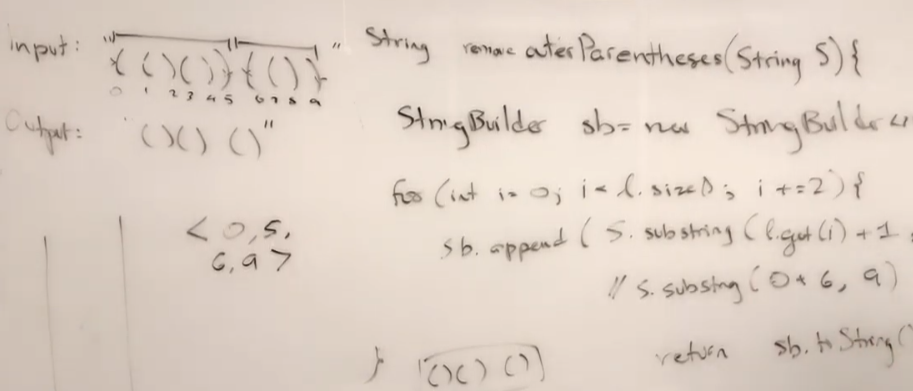 Input: "( ( ) ( ) ) ( ( ) ) "
0 1 2 3 4 5 6 7 8 9
Output: "( ) ( ) ( )"
< 0, 5,
6, 9 >
String remove outerParentheses(String S) {
StringBuilder sb = new StringBuilder
for (int i = 0; i < l.size(); i += 2) {
sb.append ( S. substring ( l.get(i) + 1
// s. substring ( 0 + 6, 9 )
return sb. to String (
}
( ) ( ) ( )